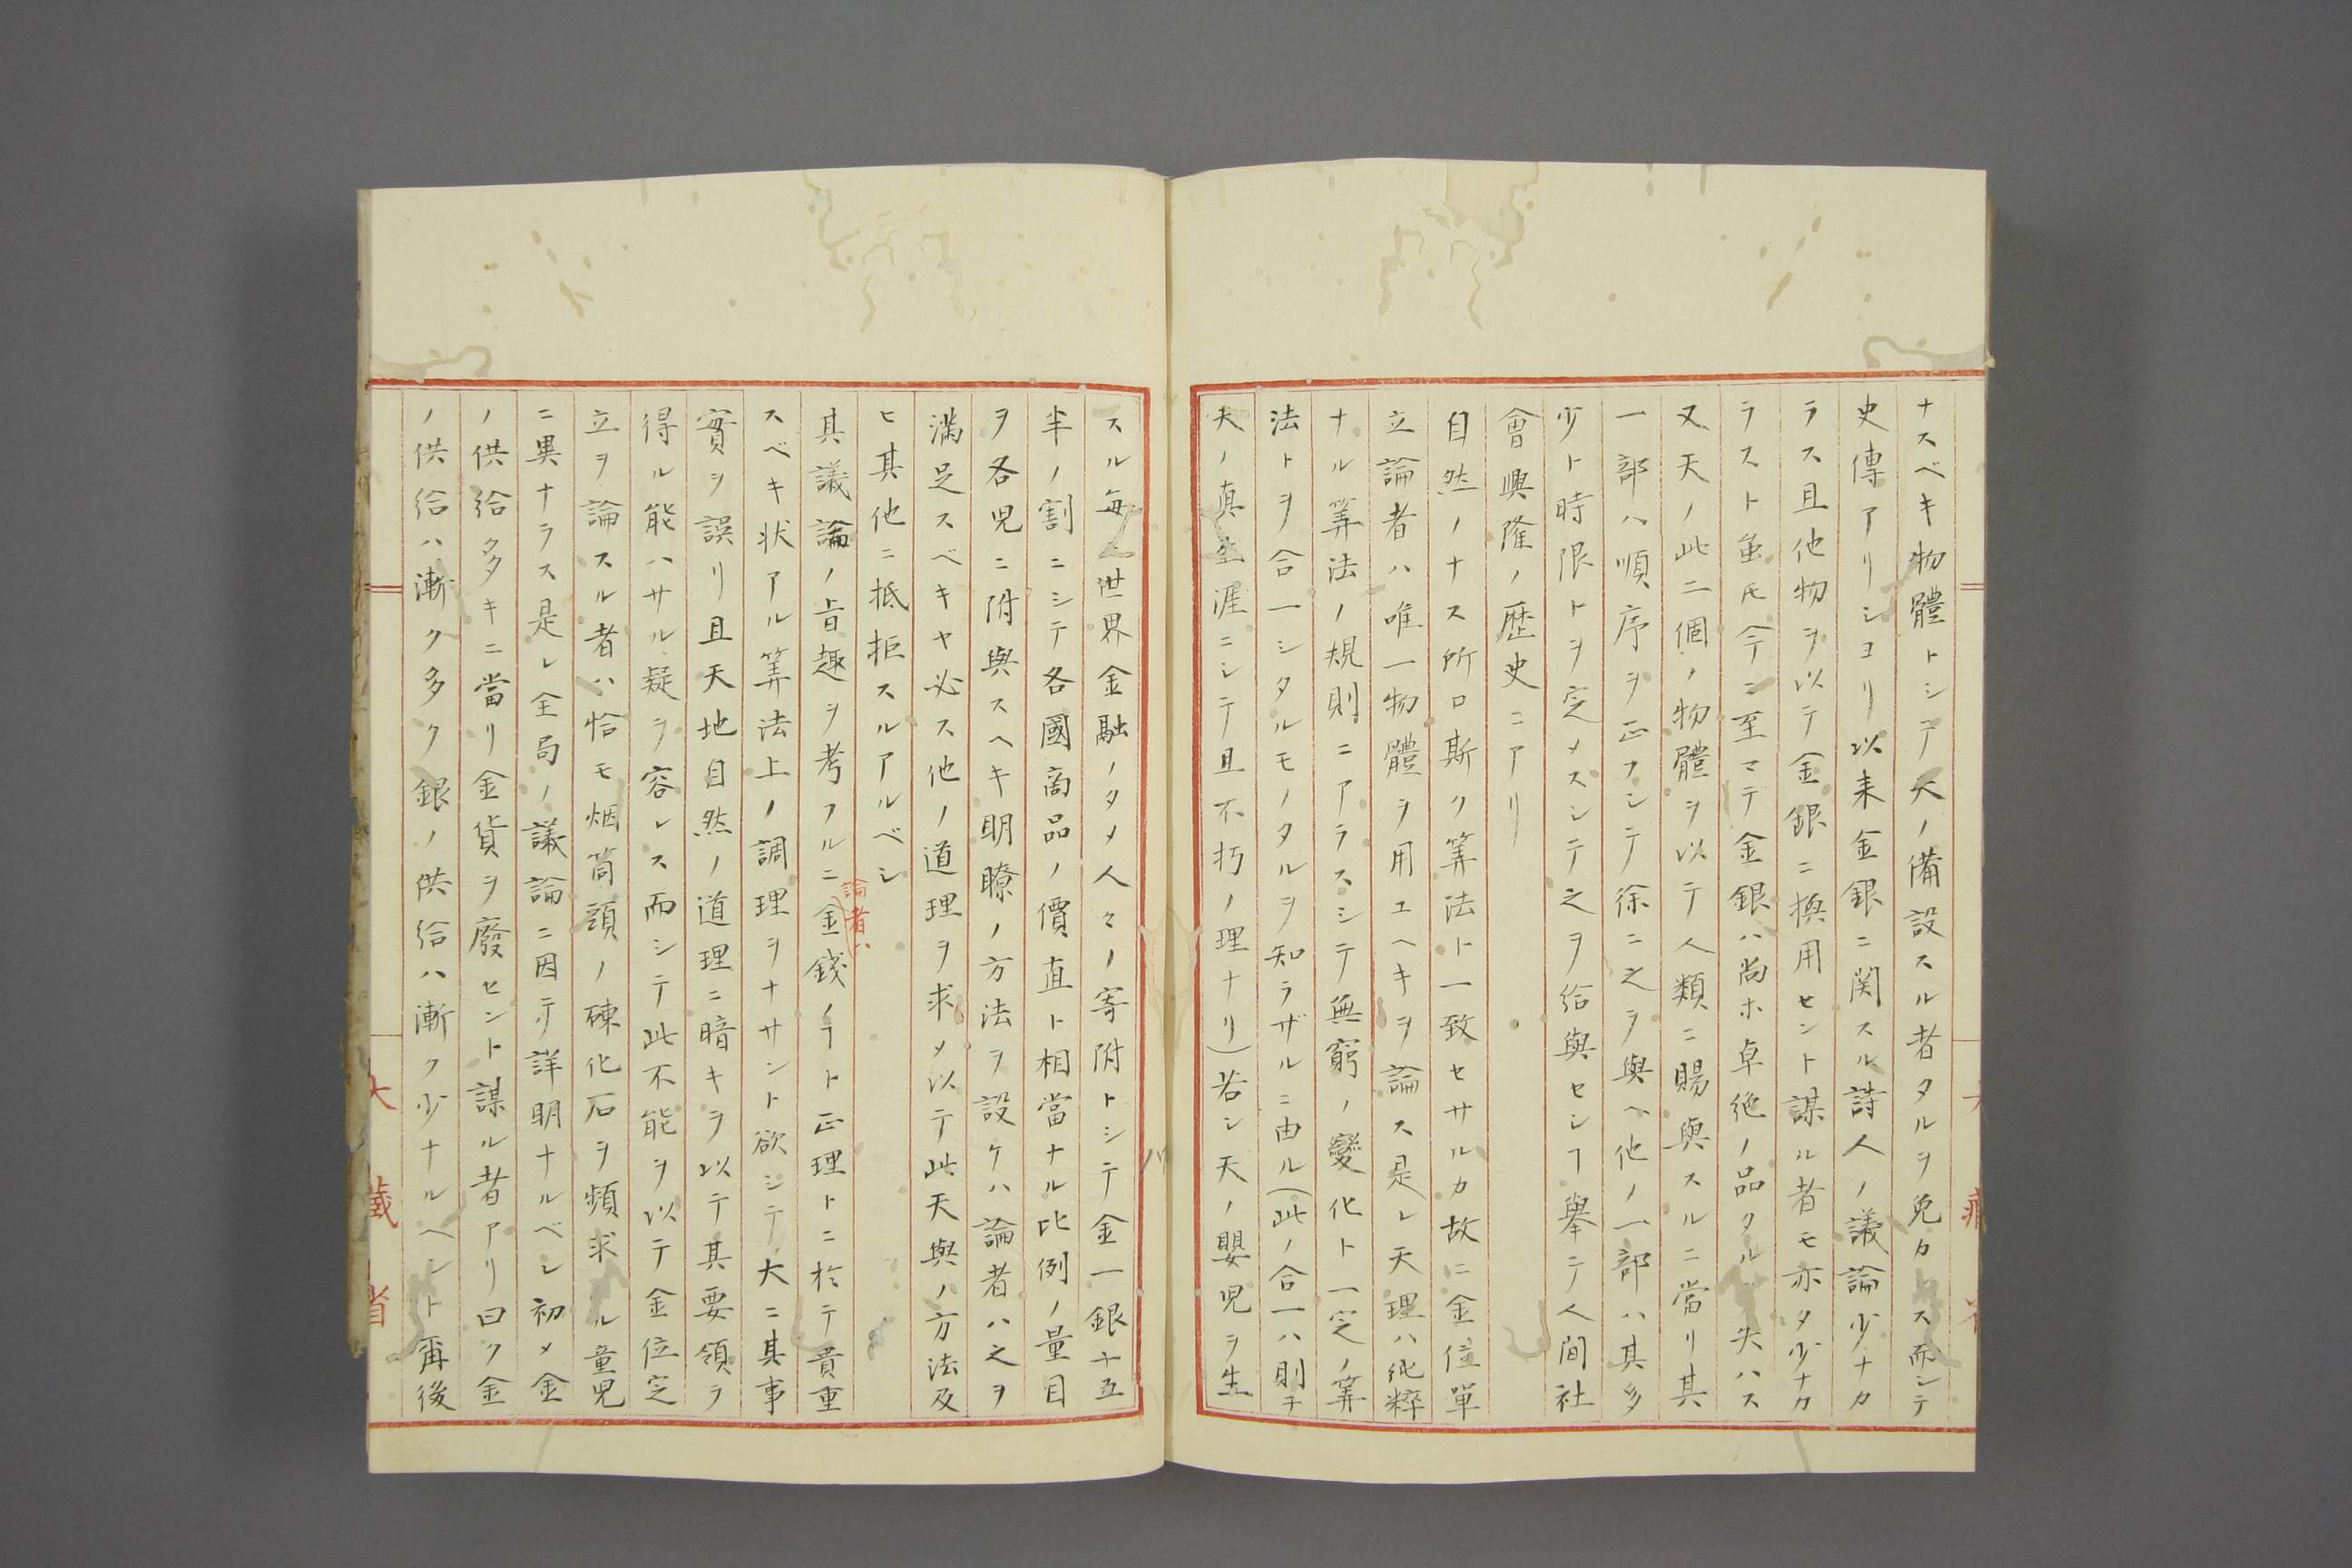 ナスベキ物體トシテ天ノ備設スル者タルヲ免カス而シテ
史傳アリシヨリ以来金銀ニ関スル詩人ノ議論少ナカ
ラス且他物ヲ以テ金銀ニ換用セント謀ル者モ亦タ少ナカ
ラスト虽𪜈今ニ至マテ金銀ハ尚ホ卓絶ノ品タルヲ失ハス
又天ノ此二個ノ物體ヲ以テ人類ニ賜與スルニ當リ其
一部ハ順序ヲ正フシテ徐ニ之ヲ與ヘ他ノ一部ハ其多
少ト時限トヲ定メスシテ之ヲ給與セシヿ舉テ人間社
會興隆ノ歴史ニアリ
自然ノナス所ロ斯ク筭法ト一致セサルカ故ニ金位單
立論者ハ唯一物體ヲ用ユヘキヲ論ス是レ天理ハ純粹
ナル筭法ノ規則ニアラスシテ無窮ノ變化ト一定ノ筭
法トヲ合一シタルモノタルヲ知ラザルニ由ル(此ノ合一ハ則チ
天ノ真生涯ニシテ且不朽ノ理ナリ)若シ天ノ嬰児ヲ生
スル毎ニ世界金融ノタメ人々ノ寄附トシテ金一銀十五
半ノ割ニシテ各國商品ノ價直ト相當ナル比例ノ量目
ヲ各児ニ附與スヘキ明瞭ノ方法ヲ設ケハ論者ハ之ヲ
満足スベキヤ必ス他ノ道理ヲ求メ以テ此天與ノ方法及
ヒ其他ニ抵拒スルアルベシ
其議論ノ旨趣ヲ考フルニ論者ハ金錢ノヿト正理トニ於テ貴重
スベキ状アル筭法上ノ調理ヲナサント欲シテ大ニ其事
實ヲ誤リ且天地自然ノ道理ニ暗キヲ以テ其要領ヲ
得ル能ハサル疑ヲ容レス而シテ此不能ヲ以テ金位定
立ヲ論スル者ハ恰モ烟筒頭ノ磚化石ヲ頻求スル童児
ニ異ナラス是レ全局ノ議論ニ因テ詳明ナルベシ初メ金
ノ供給多キニ當リ金貨ヲ廢セント謀ル者アリ曰ク金
ノ供給ハ漸ク多ク銀ノ供給ハ漸ク少ナルヘシト爾後
大藏省